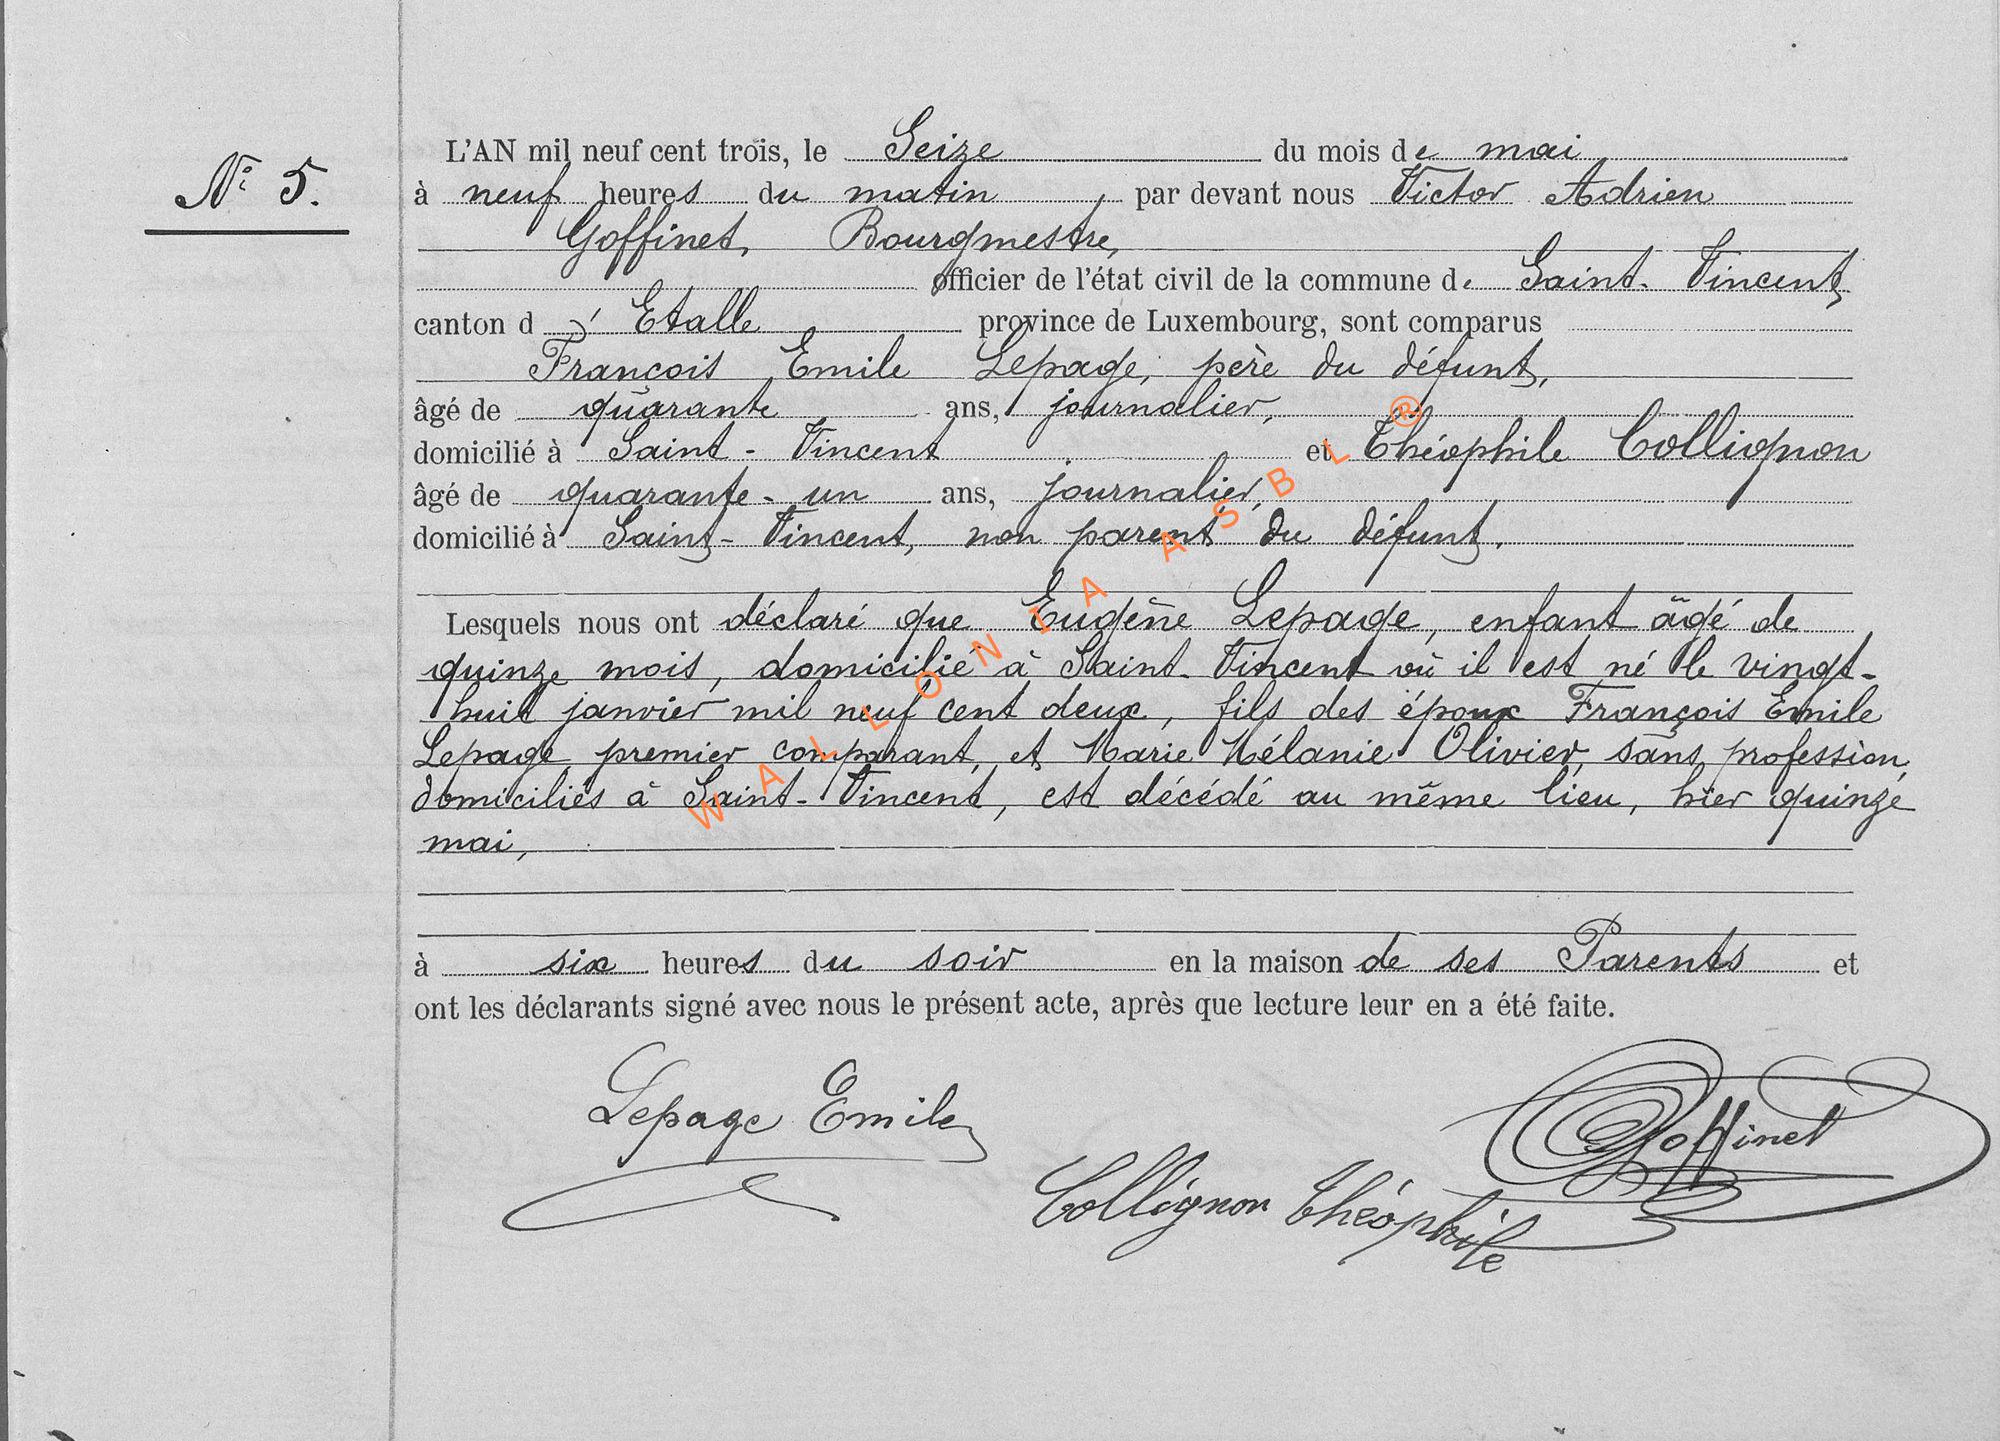 N° 5.
L'AN mil neuf cent trois, le Seize du mois de mai
à neuf heures du matin par devant nous Victor Adrien
Goffinet, Bourgmestre,
officier de l'état civil de la commune de Saint-Vincent,
canton d'Etalle province de Luxembourg, sont comparus
François Emile Lepage, père du défunt,
âgé de quarante ans, journalier,
domicilié à Saint-Vincent et Théophile Collignon
âgé de quarante-un ans, journalier,
domicilié à Saint-Vincent, non parent du défunt.
Lesquels nous ont déclaré que Eugène Lepage, enfant âgé de
quinze mois, domicilié à Saint-Vincent où il est né le vingt-
huit janvier mil neuf cent deux, fils des époux François Emile
Lepage, premier comparant, et Marie Mélanie Olivier, sans profession,
domiciliés à Saint-Vincent, est décédé au même lieu, hier quinze
mai,
à six heures du soir en la maison de ses Parents et
ont les déclarants signé avec nous le présent acte, après que lecture leur en a été faite.
Lepage Emile
Goffinet
Collignon Théophile
WALLONIA ASBL ®